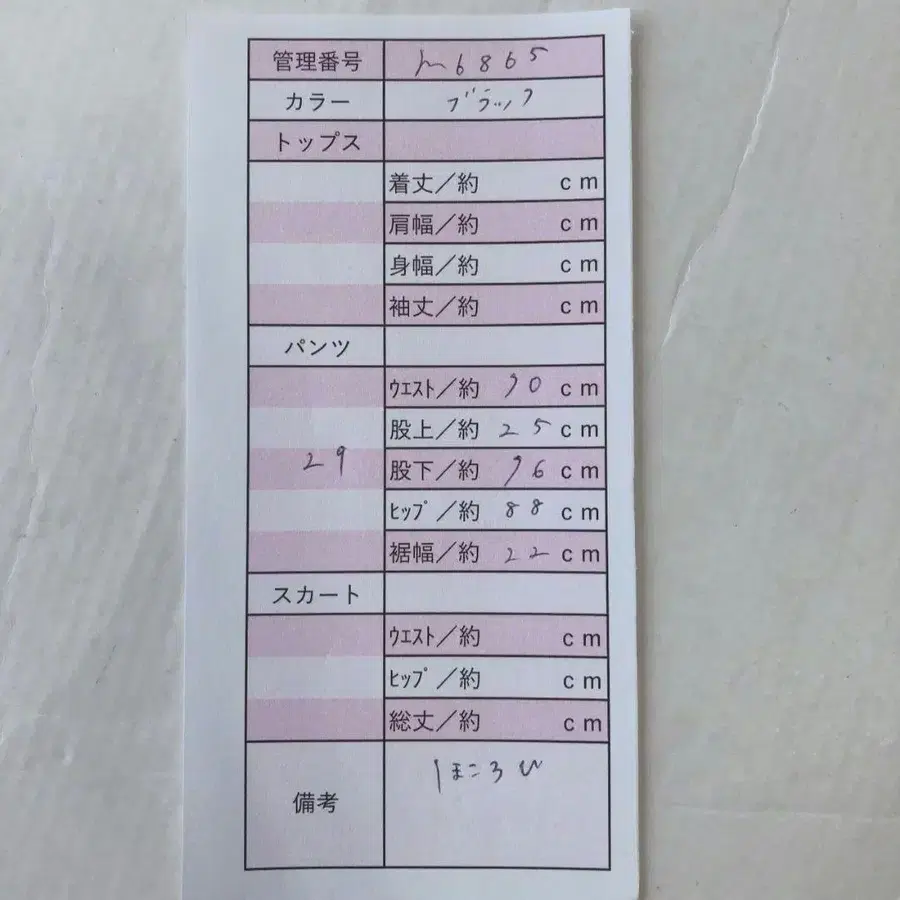 管理番号 m6865
カラー ブラック
トップス
着丈／約 cm
肩幅／約 cm
身幅／約 cm
袖丈／約 cm
パンツ
29
ｳｴｽﾄ／約 70 cm
股上／約 25 cm
股下／約 76 cm
ﾋｯﾌﾟ／約 88 cm
裾幅／約 22 cm
スカート
ｳｴｽﾄ／約 cm
ﾋｯﾌﾟ／約 cm
総丈／約 cm
備考 ほころび